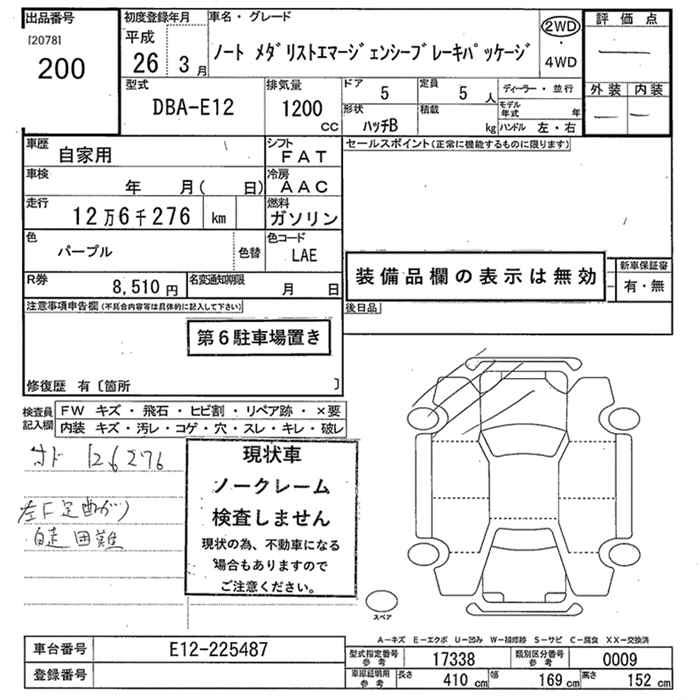 出品番号
[2078]
200
初度登録年月
平成
26 3月
車名・グレード
ノート メダリストエマージェンシーブレーキパッケージ
2WD
・
4WD
評価点
外装 内装
型式
DBA-E12
排気量
1200
cc
ドア 5
定員 5 人
形状
ハッチB
積載
kg
ディーラー・並行
モデル年式 年
ハンドル 左・右
車歴
自家用
シフト
FAT
車検
年 月( 日)
冷房
AAC
走行
12万6千276 km
燃料
ガソリン
色
パープル
色替
色コード
LAE
R券
8,510円
名変通知期限
月 日
セールスポイント(正常に機能するものに限ります)
装備品欄の表示は無効
新車保証書
有・無
後日品
注意事項申告欄(不具合内容等は具体的に記入して下さい)
第6駐車場置き
修復歴 有〔箇所 〕
検査員記入欄
FW キズ・飛石・ヒビ割・リペア跡・×要
内装 キズ・汚レ・コゲ・穴・スレ・キレ・破レ
オド 126276
左F足曲がり
自走困難
現状車
ノークレーム
検査しません
現状の為、不動車になる
場合もありますので
ご注意ください。
スペア
A−キズ E−エクボ U−凹み W−補修跡 S−サビ C−腐食 XX−交換済
車台番号
E12-225487
登録番号
型式指定番号
参考
17338
類別区分番号
参考
0009
車庫証明用
参考
長さ 410 cm
幅 169 cm
高さ 152 cm